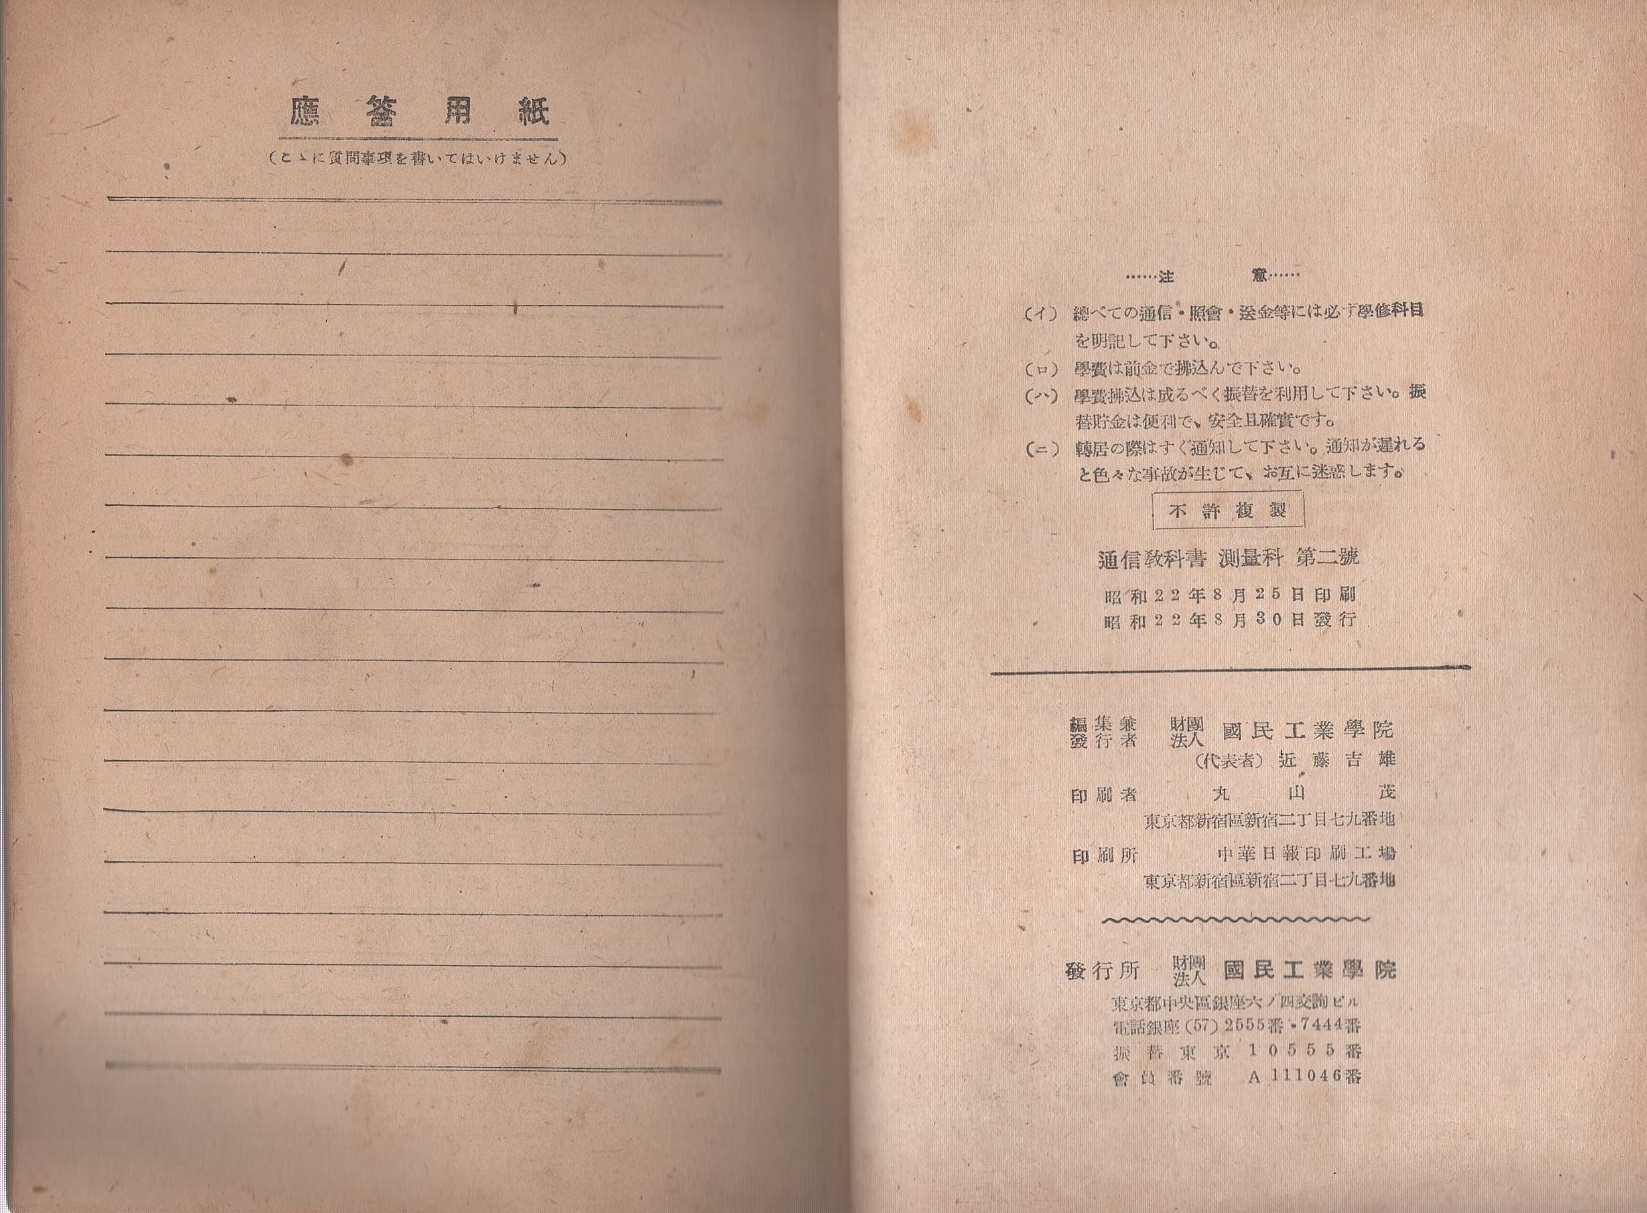 應答用紙
(こゝに質問事項を書いてはいけません)
……注意……
(イ) 總べての通信・照會・送金等には必ず學修科目
を明記して下さい。
(ロ) 學費は前金で拂込んで下さい。
(ハ) 學費拂込は成るべく振替を利用して下さい。振
替貯金は便利で、安全且確實です。
(ニ) 轉居の際はすぐ通知して下さい。通知が遲れる
と色々な事故が生じて、お互に迷惑します。
不許複製
通信教科書 測量科 第二號
昭和22年8月25日印刷
昭和22年8月30日發行
編集兼發行者 財團法人 國民工業學院
(代表者) 近藤吉雄
印刷者 丸山茂
東京都新宿區新宿二丁目七九番地
印刷所 中華日報印刷工場
東京都新宿區新宿二丁目七九番地
發行所 財團法人 國民工業學院
東京都中央區銀座六ノ四交詢ビル
電話銀座(57)2555番・7444番
振替東京10555番
會員番號 A111046番